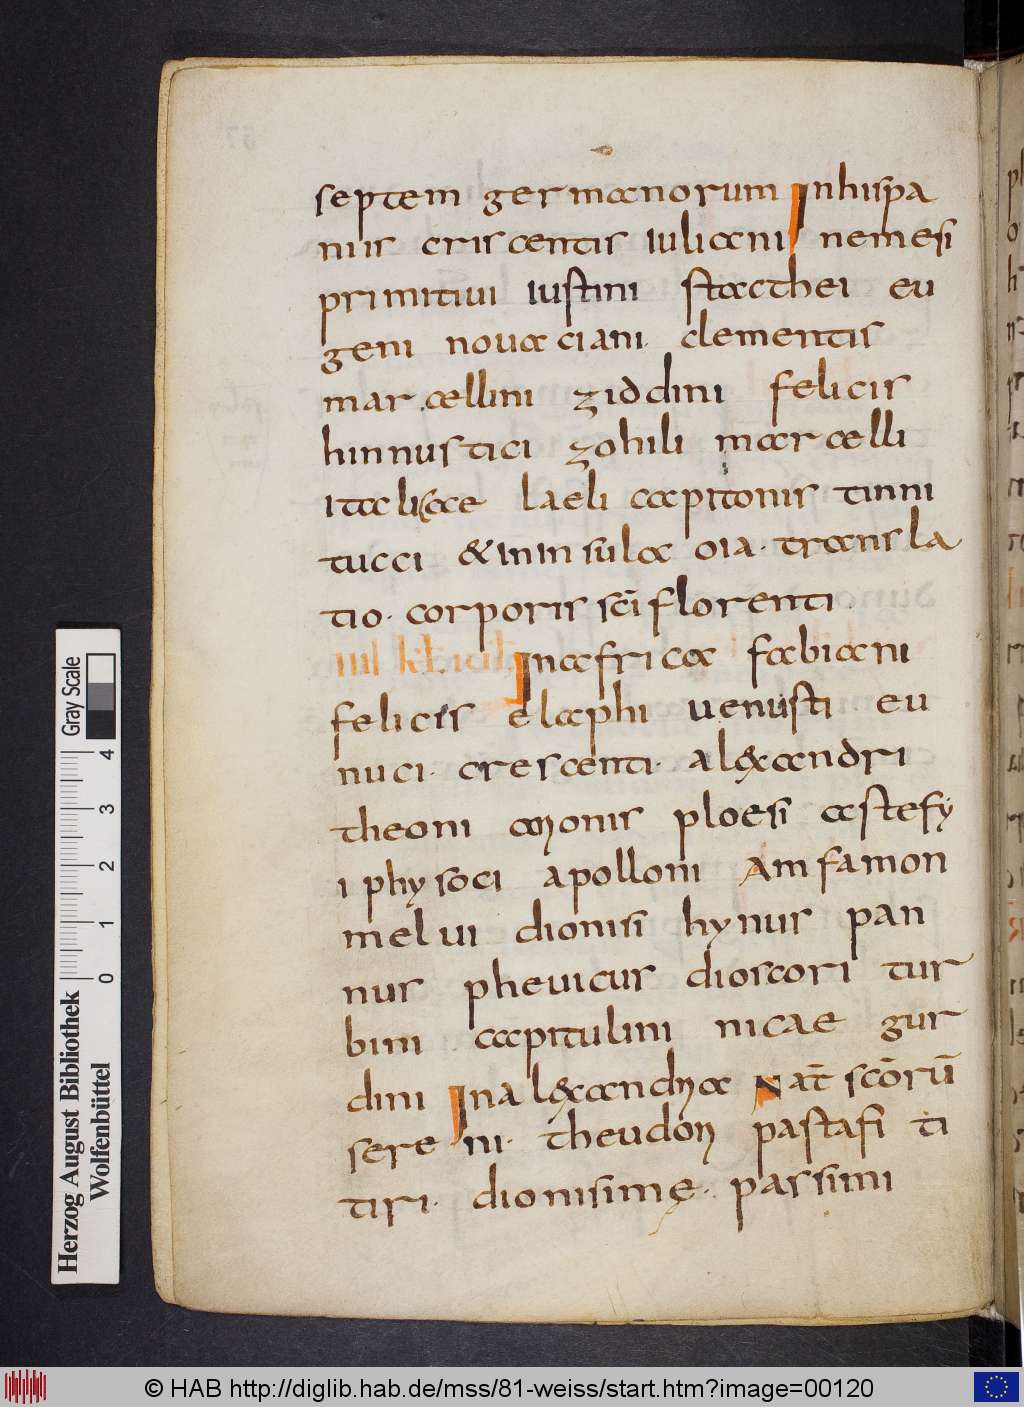 septem germanorum Inhispa
niis criscentis iuliani nemesi
primitivi iustini stacthei eu
geni novaciani. clementis
mar.cellini ziddini felicis
hinnustici zohili marcelli
itaclicae laeli capitonis tinni
tucci & ininsula oia. transla
tio. corporis scī florenti
IIII kł Inafrica fabiani
felicis elaphi venusti eu
nuci. crescenti. alexandri
theoni ploesi astefy
i physoci apolloni Amfamon
melui dionisi hynus pan
nus pheuicus dioscori tur
bini capitulini nicae gur
dini Inalexandria Nat̄ scōrū
sereni. theudon pastafi ti
tiri. dionisime. passimi
Herzog August Bibliothek
Wolfenbüttel
Gray Scale
0 1 2 3 4
© HAB http://diglib.hab.de/mss/81-weiss/start.htm?image=00120